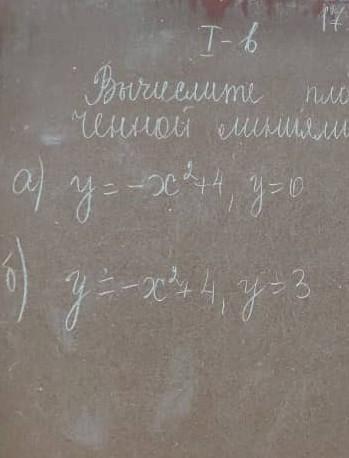 17
I-в
Вычислите пло
ченной линиями
а) y = -x²+4, y=0
б) y = -x²+4, y=3